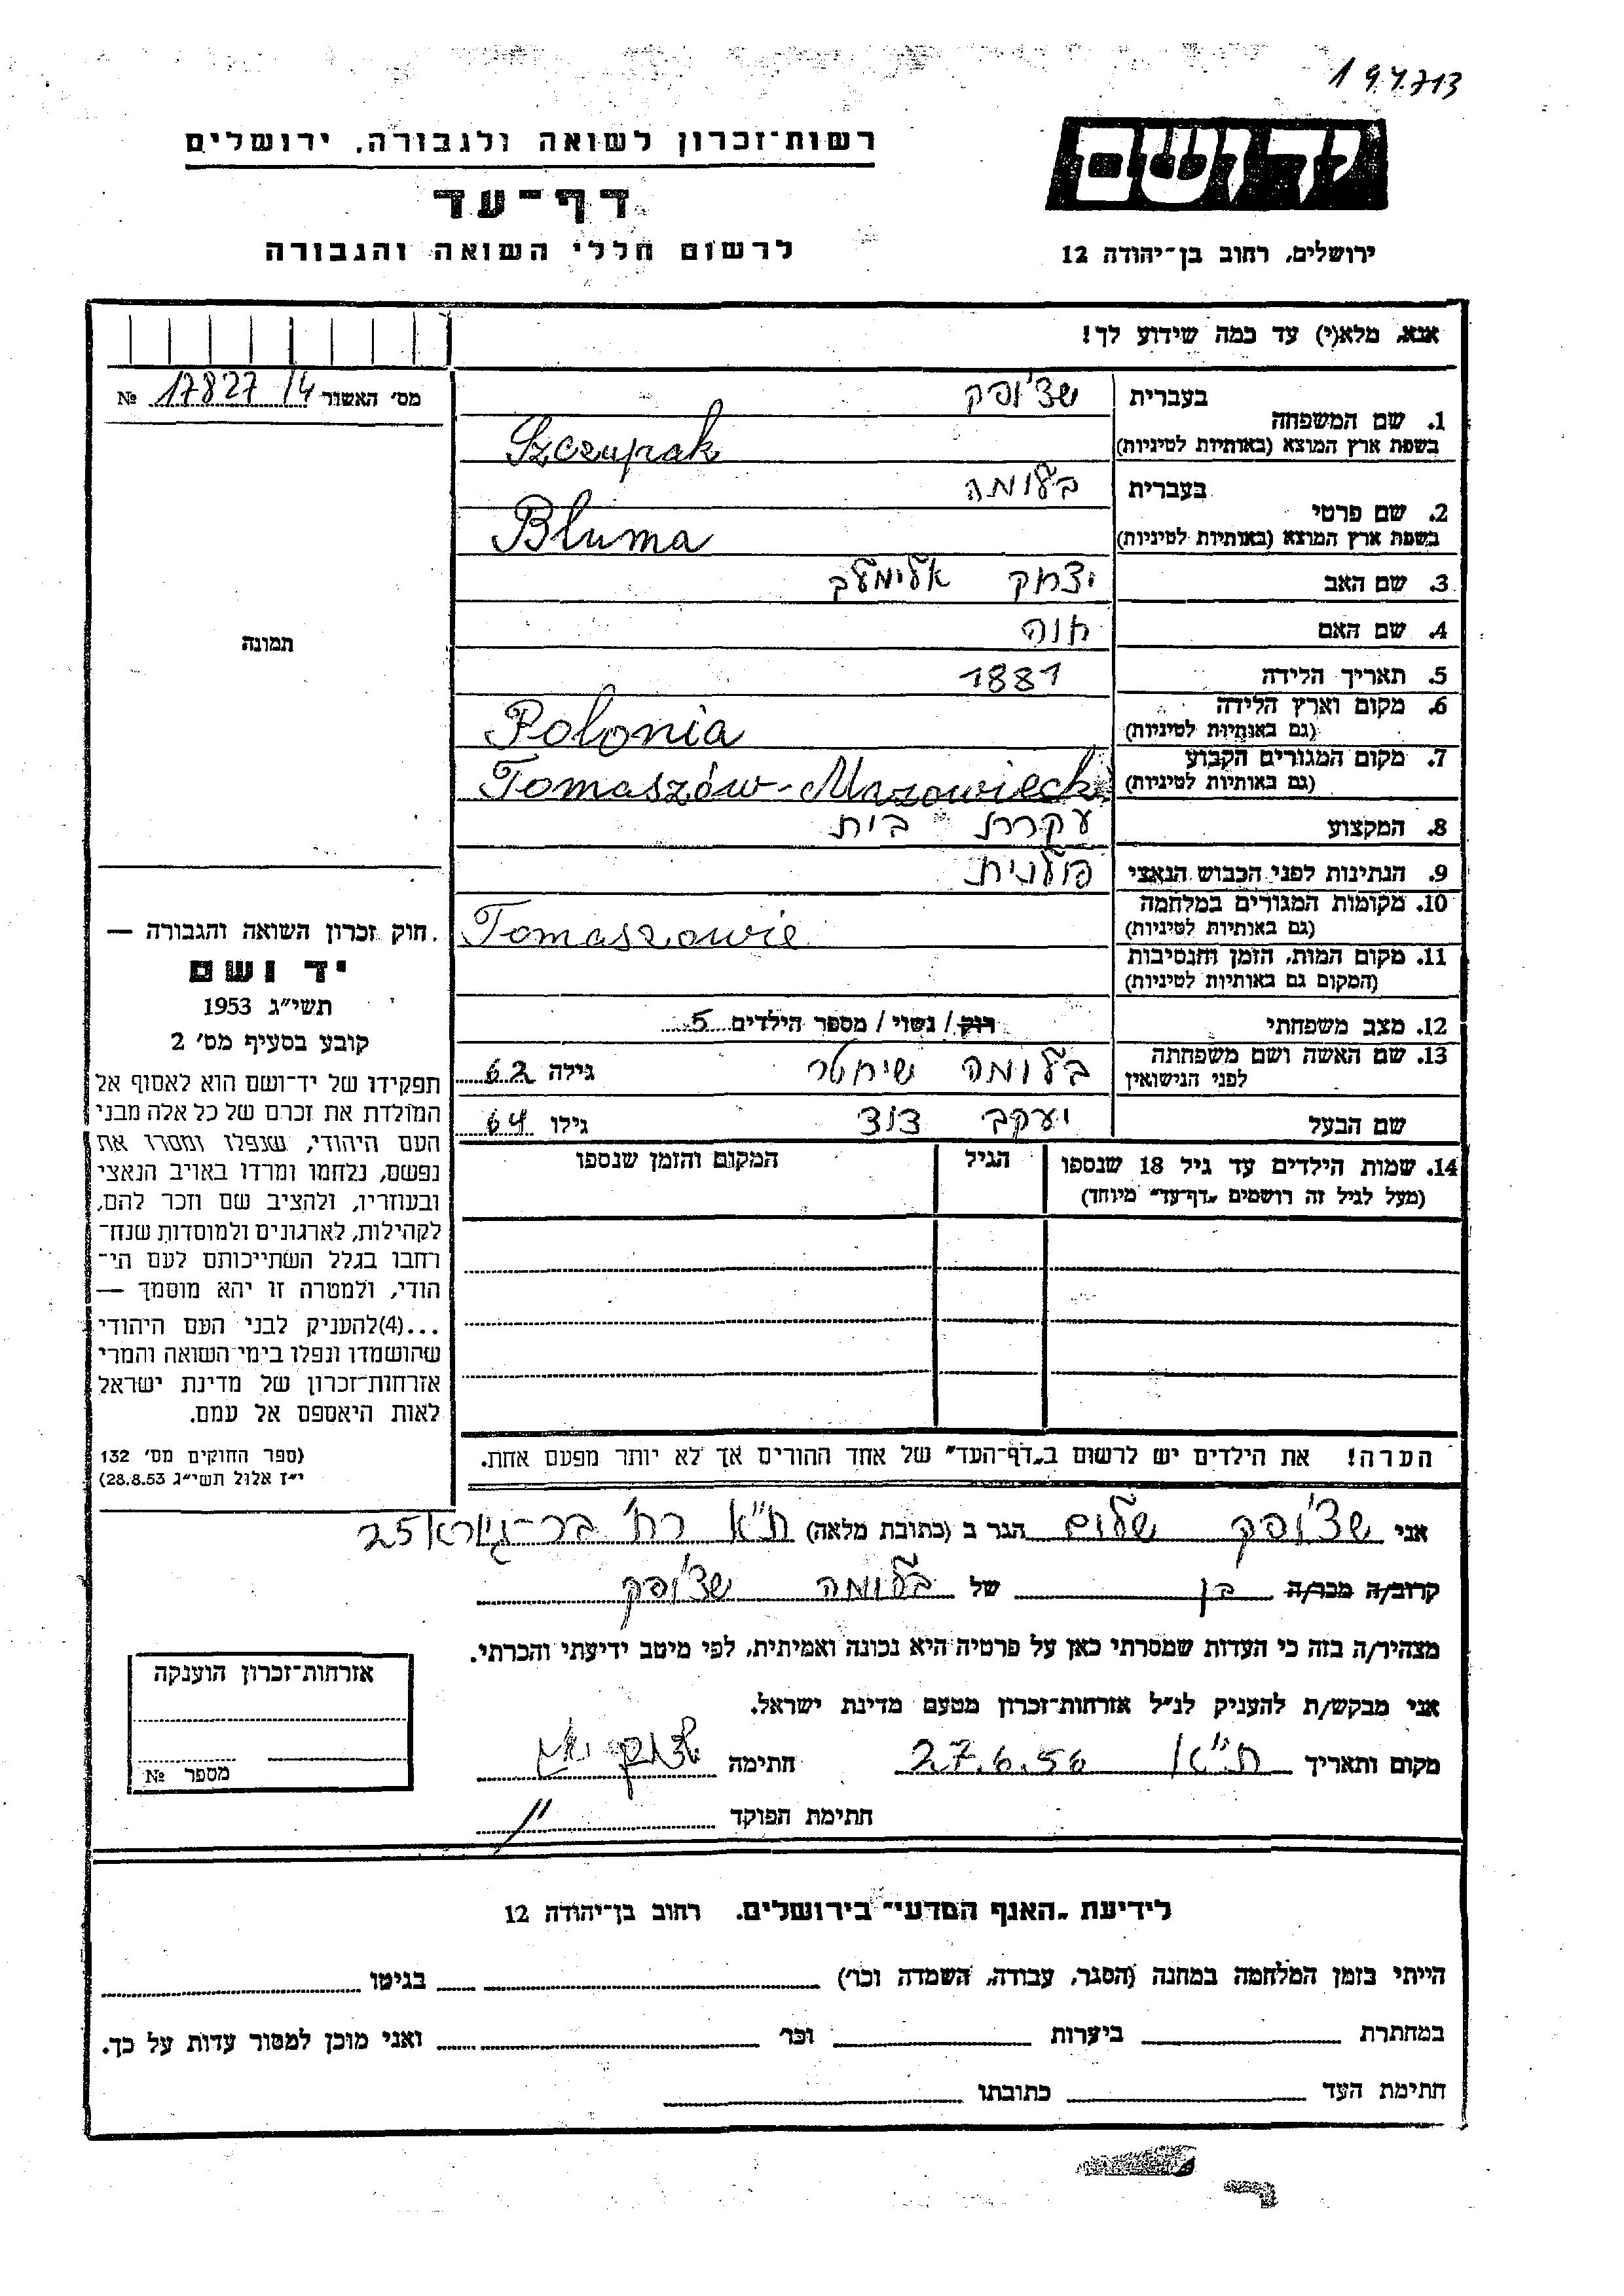 1 94713
רשות־זכרון לשואה ולגבורה, ירושלים
יד ושם
דף־עד
לרשום חללי השואה והגבורה
ירושלים, רחוב בן־יהודה 12
אנא, מלא(י) עד כמה שידוע לך!
מס׳ האשור 17827/4 №
בעברית שצ'ופק
1. שם המשפחה
בשפת ארץ המוצא (באותיות לטיניות) Szczupak
בעברית בלומה
2. שם פרטי
בשפת ארץ המוצא (באותיות לטיניות) Bluma
3. שם האב יצחק אלימלך
4. שם האם חוה
5. תאריך הלידה 1881
6. מקום וארץ הלידה
(גם באותיות לטיניות) Polonia
7. מקום המגורים הקבוע
(גם באותיות לטיניות) Tomaszów-Mazowiecki
8. המקצוע עקרת בית
9. הנתינות לפני הכבוש הנאצי פולנית
10. מקומות המגורים במלחמה
(גם באותיות לטיניות) Tomaszowie
11. מקום המות, הזמן והנסיבות
(המקום גם באותיות לטיניות)
12. מצב משפחתי רוק / נשוי / מספר הילדים 5
13. שם האשה ושם משפחתה
לפני הנישואין בלומה שיחטר גילה 62
שם הבעל יעקב דוד גילו 64
14. שמות הילדים עד גיל 18 שנספו הגיל המקום והזמן שנספו
(מעל לגיל זה רושמים „דף־עד" מיוחד)
הערה! את הילדים יש לרשום ב„דף־העד" של אחד ההורים אך לא יותר מפעם אחת.
תמונה
חוק זכרון השואה והגבורה —
יד ושם
תשי״ג 1953
קובע בסעיף מס׳ 2
תפקידו של יד־ושם הוא לאסוף אל
המולדת את זכרם של כל אלה מבני
העם היהודי, שנפלו ומסרו את
נפשם, נלחמו ומרדו באויב הנאצי
ובעוזריו, ולהציב שם וזכר להם,
לקהילות, לארגונים ולמוסדות שנח־
רחבו בגלל השתייכותם לעם הי־
הודי, ולמטרה זו יהא מוסמך —
...(4)להעניק לבני העם היהודי
שהושמדו ונפלו בימי השואה והמרי
אזרחות־זכרון של מדינת ישראל
לאות היאספם אל עמם.
(ספר החוקים מס׳ 132
י״ז אלול תשי״ג 28.8.53)
אני שצ'ופק שלום הגר ב (כתובת מלאה) ת"א רח' בר-גיורא 25
קרוב/ה מכר/ה בן של בלומה שצ'ופק
מצהיר/ה בזה כי העדות שמסרתי כאן על פרטיה היא נכונה ואמיתית, לפי מיטב ידיעתי והכרתי.
אני מבקש/ת להעניק לנ״ל אזרחות־זכרון מטעם מדינת ישראל.
מקום ותאריך ת"א 27.6.56 חתימה
חתימת הפוקד
אזרחות־זכרון הוענקה
מספר №
לידיעת „האגף המדעי״ בירושלים. רחוב בן־יהודה 12
הייתי בזמן המלחמה במחנה (הסגר, עבודה, השמדה וכר׳) בגיטו
במחתרת ביערות וכר׳ ואני מוכן למסור עדות על כך.
חתימת העד כתובתו